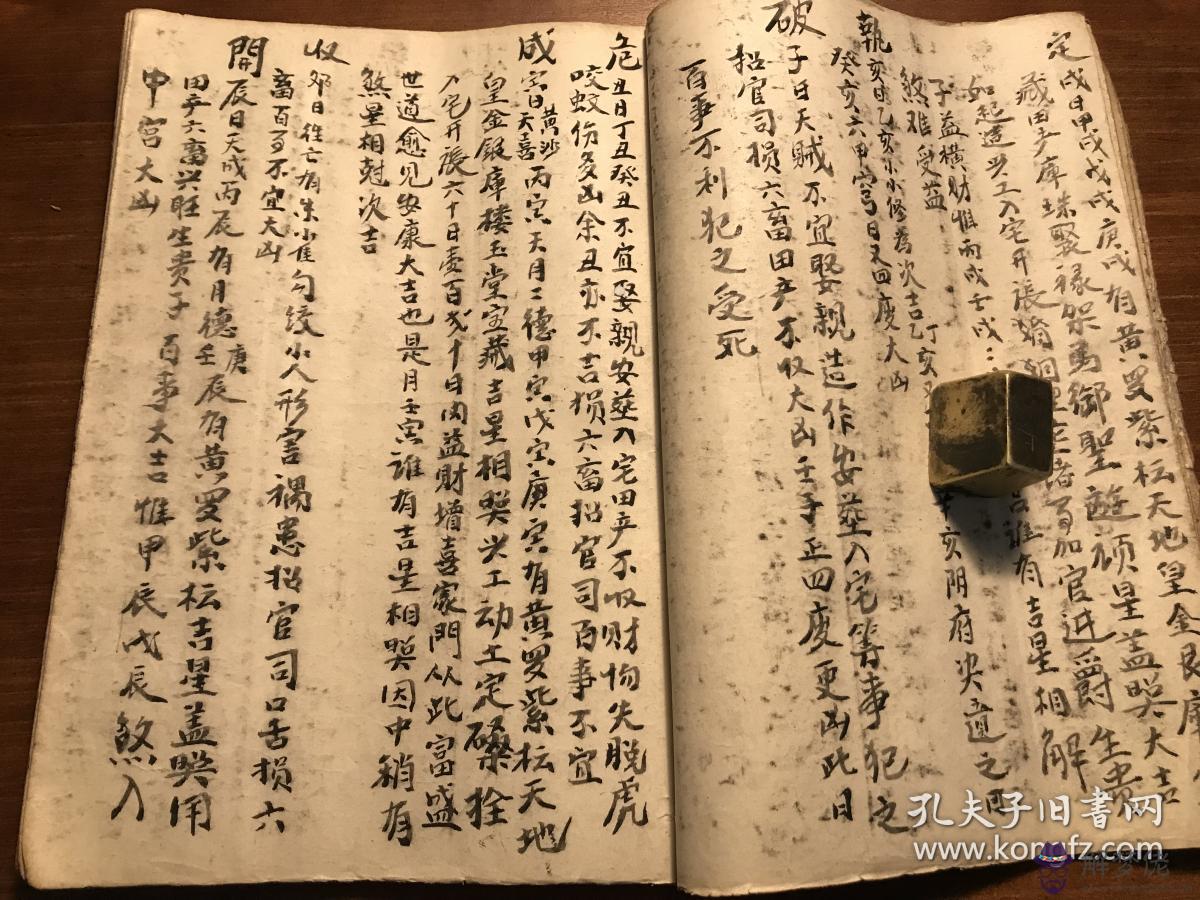 定戌日甲戌戊戌庚戌有黄罗紫枟天地皇金艮庫
藏田产庫珠聚禄架馬御聖遊顾星盖照大吉
如起造兴工入宅开張
官进爵生贵
子益横财惟丙戌壬戌
谁有吉星相解
煞难受益
執亥日乙亥小小修為次吉丁亥
辛亥阴府决遭之凶
癸亥六甲穷日又四废大凶
破子日天贼不宜娶親造作安葬入宅等事犯之
招官司损六畜田产不收大凶壬子正四废更凶此日
百事不利犯之受死
危丑日丁丑癸丑不宜娶親安葬入宅田产不收财物失脱虎
咬蛟伤多凶余丑亦不吉损六畜招官司百事不宜
成寅日天喜黄沙丙寅天月二德甲寅戊寅庚寅有黄罗紫枟天地
皇金銀庫楼玉堂宝藏吉星相照兴工动土定磉拴
入宅开張六十日委百式十日内益財增喜家門从此富盛
世道愈见安康大吉也是月壬寅谁有吉星相照因中稍有
煞星相尅次吉
收卯日往亡有朱雀勾绞小人形害禍患招官司口舌损六
畜百事不宜大凶
開辰日天成丙辰有月德壬辰庚辰有黄罗紫枟吉星盖照用
田产六畜兴旺生贵子百事大吉惟甲辰戊辰煞入
中宫大凶
孔夫子旧书网
www.kongfz.com
解梦佬